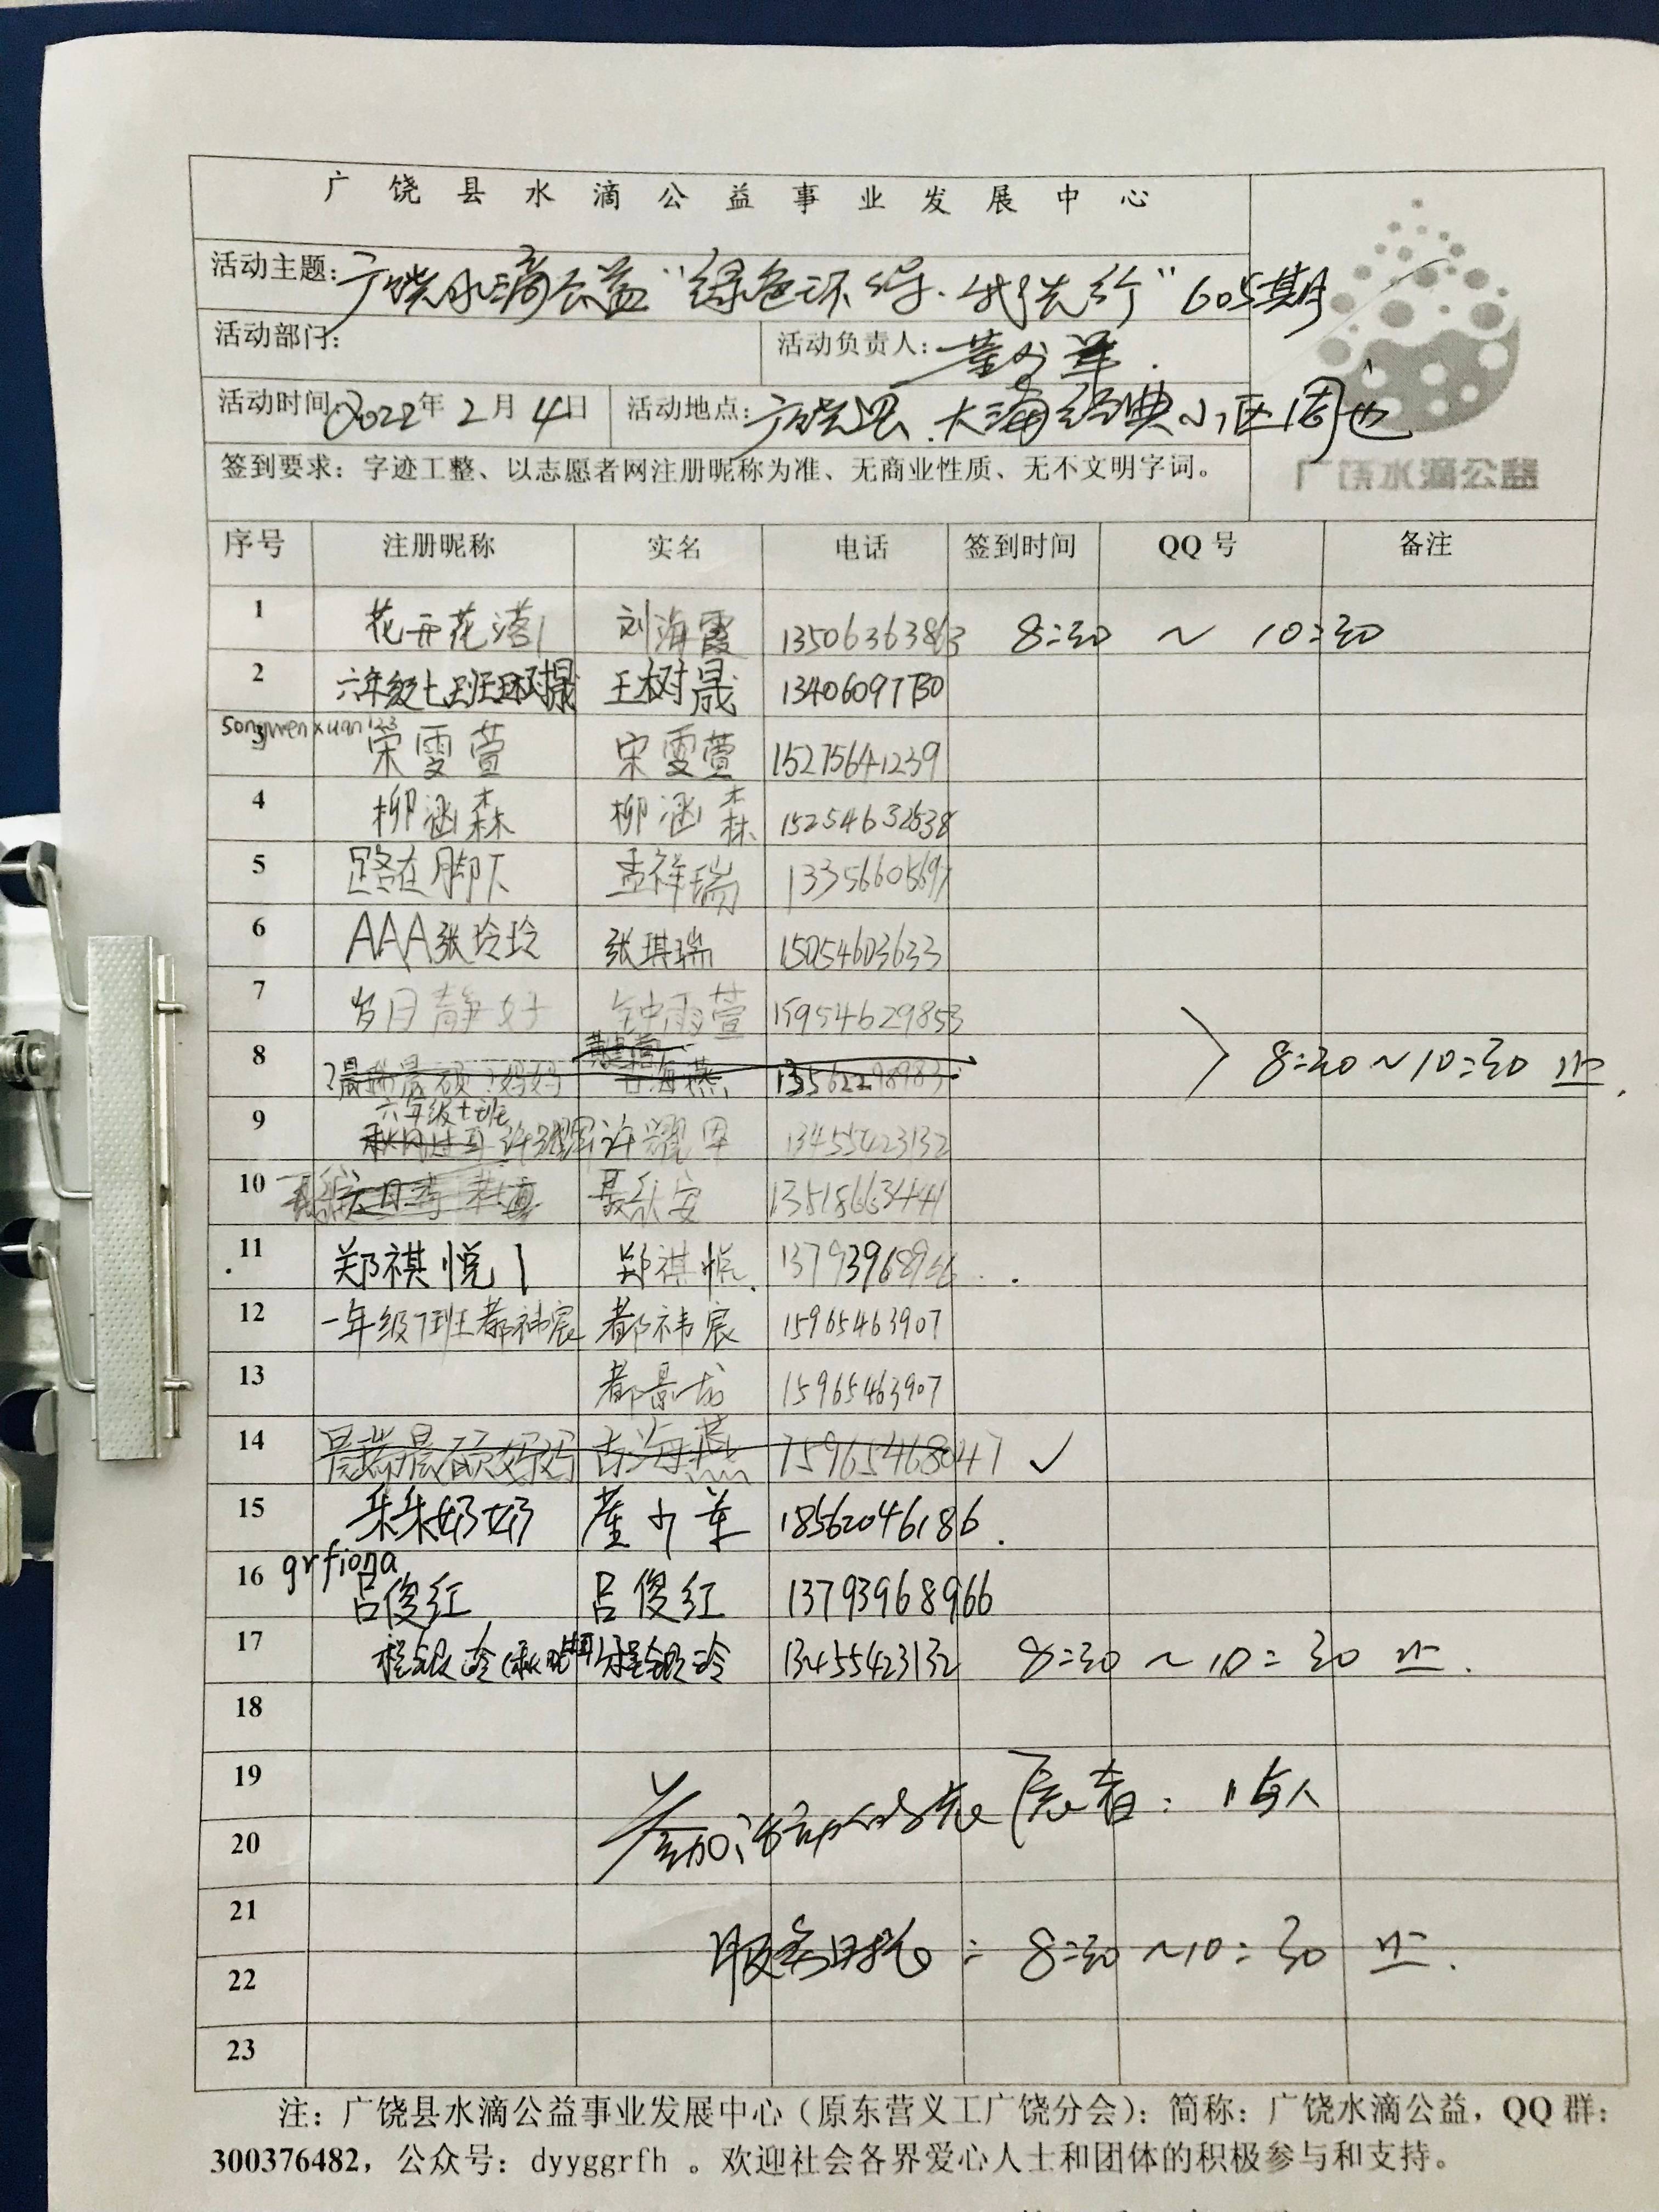 广饶县水滴公益事业发展中心
活动主题：广饶水滴公益“绿色环保·我先行”605期
活动部门： 活动负责人：董少革.
活动时间：2022年2月4日 活动地点：广饶县.大海经典小区周边
签到要求：字迹工整、以志愿者网注册昵称为准、无商业性质、无不文明字词。
广饶水滴公益
序号 注册昵称 实名 电话 签到时间 QQ号 备注
1 花开花落1 刘海霞 13506363863 8:30 ~ 10:30
2 六年级七班王树晟 王树晟 13406097130
3 songwenxuan123 宋雯萱 宋雯萱 15275641239
4 柳涵森 柳涵森 15254632638
5 路在脚下 孟祥瑞 13356605697
6 AAA张玲玲 张琪瑞 15054603633
7 岁月静好 钟雨萱 15954629853
8 海燕 13562298983 8:30~10:30
9 六年级七班 许耀 13455423132
10 13518663441
11 郑祺悦1 郑祺悦. 13793968966
12 一年级7班都祎宸 都祎宸 15965463907
13 都景龙 15965463907
14 晨瑞晨硕妈妈 古海燕 15965468047 ✓
15 朵朵奶奶 董少革 18562046186.
16 grfiona 吕俊红 吕俊红 13793968966
17 程银玲 程银玲 13455423132 8:30~10:30
18
19
参加活动的志愿者：15人
20
21
服务时长：8:30~10:30
22
23
注：广饶县水滴公益事业发展中心（原东营义工广饶分会）；简称：广饶水滴公益，QQ群：
300376482，公众号：dyyggrfh 。欢迎社会各界爱心人士和团体的积极参与和支持。